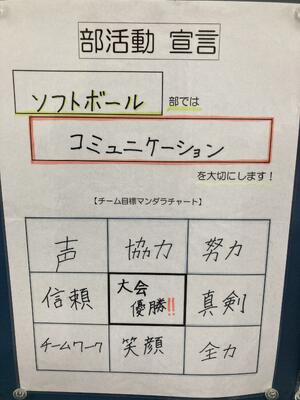 部活動 宣言
ソフトボール 部では
コミュニケーション
を大切にします！
【チーム目標マンダラチャート】
声 協力 努力
信頼 大会 真剣
優勝!!
チームワーク 笑顔 全力